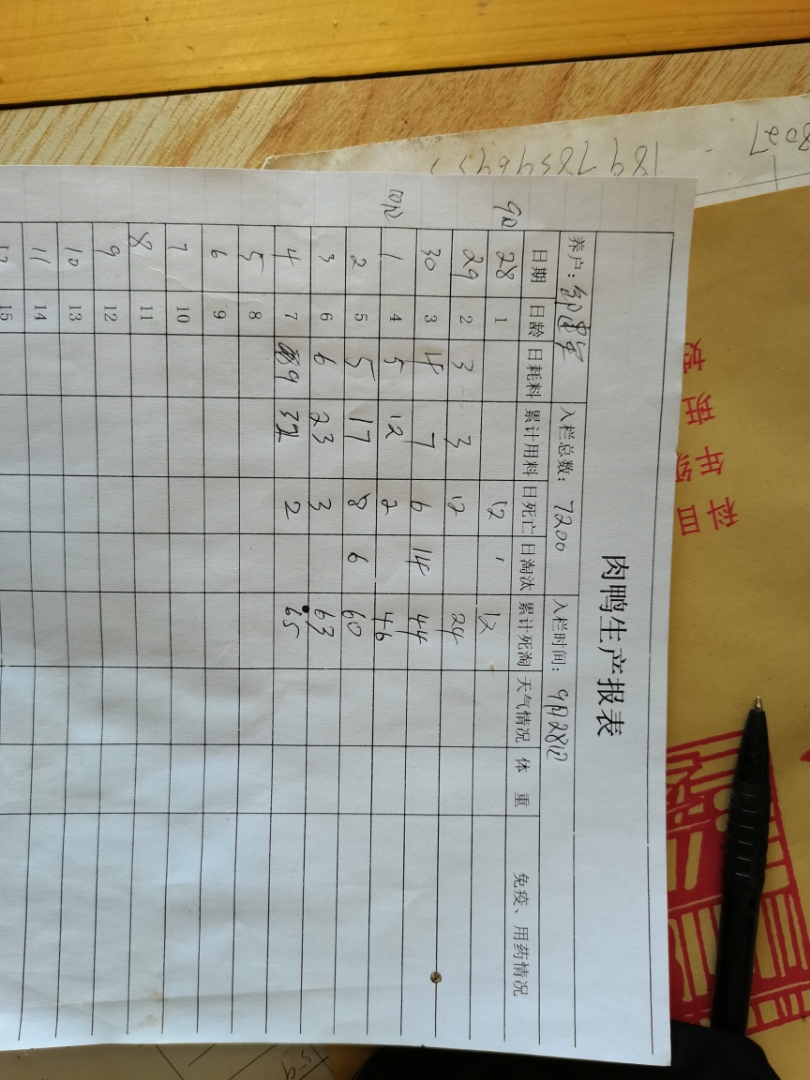 肉鸭生产报表
养户： 入栏总数：7200 入栏时间：9月28日
日期 日龄 日耗料 累计用料 日死亡 日淘汰 累计死淘 天气情况 体 重 免疫、用药情况
9月 28 1 12 12
29 2 3 3 12 24
30 3 4 7 6 14 44
10月 1 4 5 12 2 46
2 5 5 17 8 6 60
3 6 6 23 3 63
4 7 9 32 2 65
5 8
6 9
7 10
8 11
9 12
10 13
11 14
12 15
科目
年级
班
姓
8027